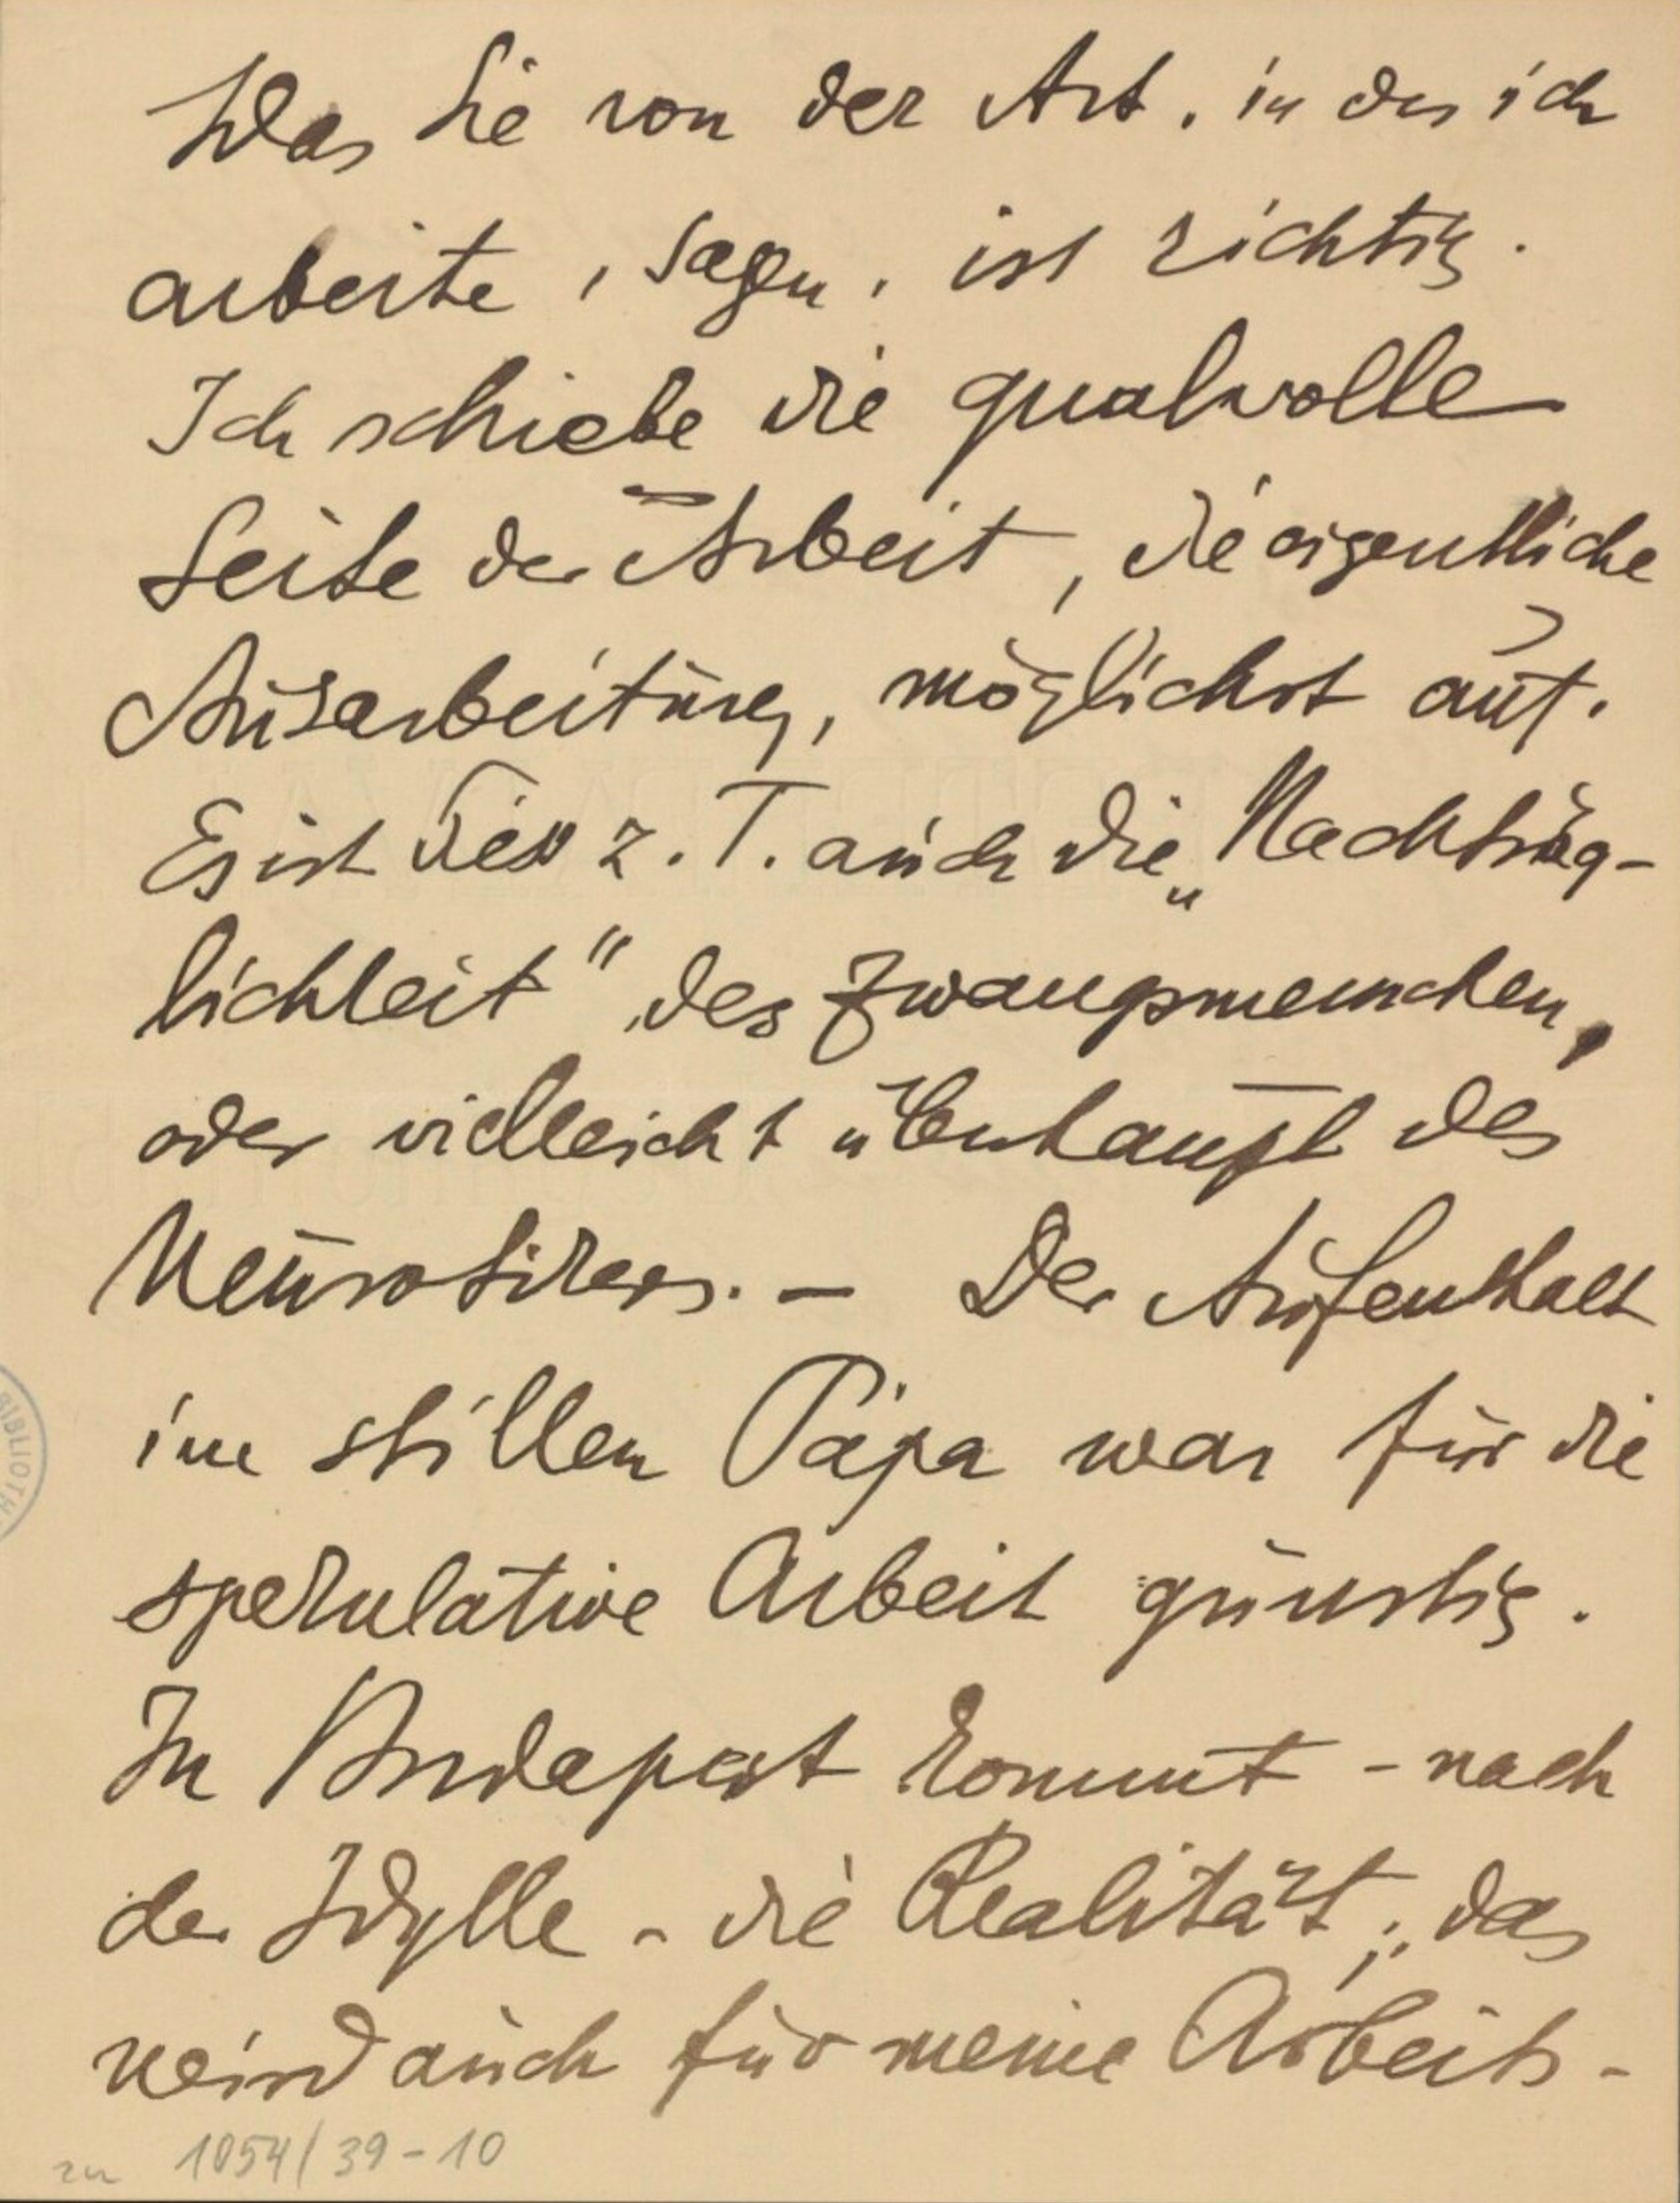 Was Sie von der Art, in der ich
arbeite, sagen, ist richtig.
Ich schiebe die qualvolle
Seite der Arbeit, die eigentliche
Ausarbeitung, möglichst auf.
Es ist dies z. T. auch die „Nachträg-
lichkeit" des Zwangsmenschen,
oder vielleicht überhaupt des
Neurotikers. – Der Aufenthalt
im stillen Pápa war für die
spekulative Arbeit günstig.
In Budapest kommt – nach
der Idylle – die Realität; das
wird auch für meine Arbeits-
zu 1054/39-10
BIBLIOTH